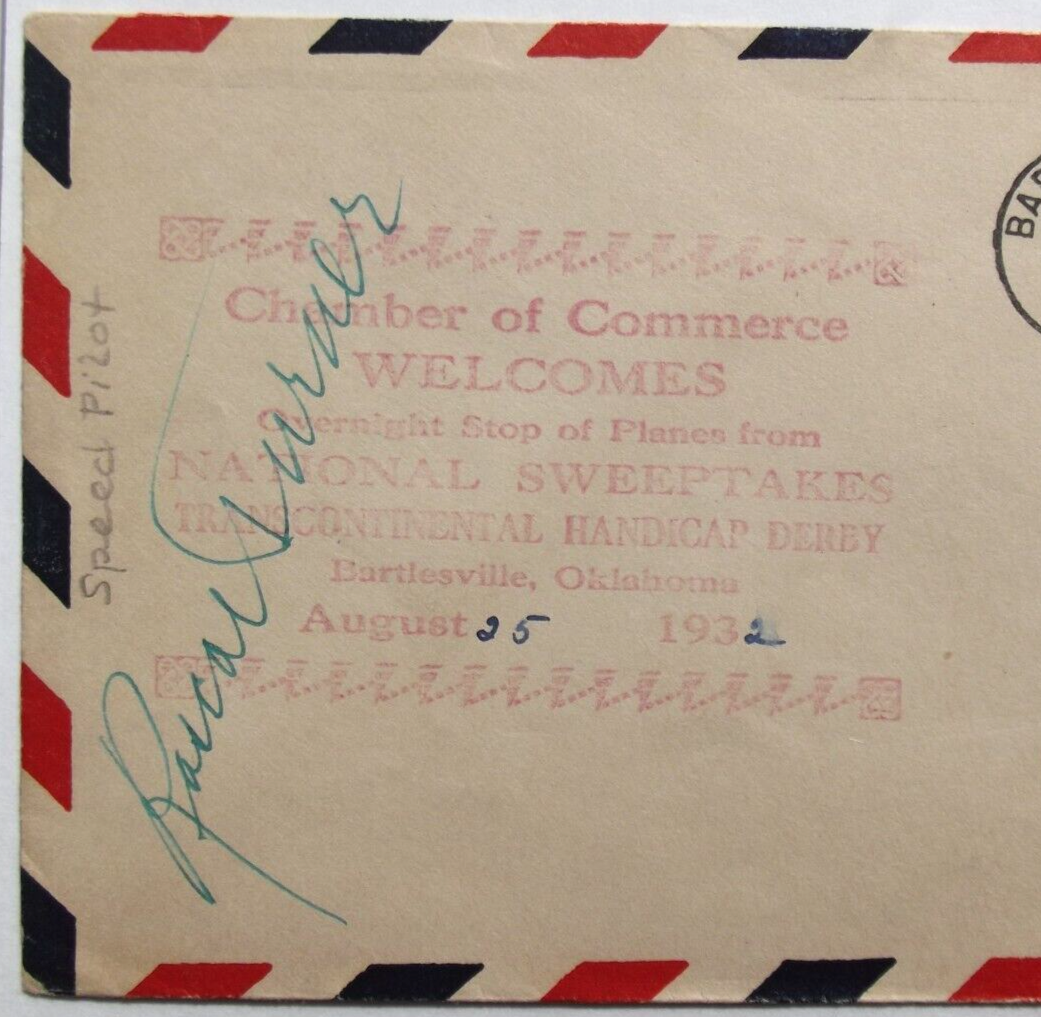 Chamber of Commerce
WELCOMES
Overnight Stop of Planes from
NATIONAL SWEEPTAKES
TRANSCONTINENTAL HANDICAP DERBY
Bartlesville, Oklahoma
August 25 1932
Speed Pilot
Roscoe Turner
BAR